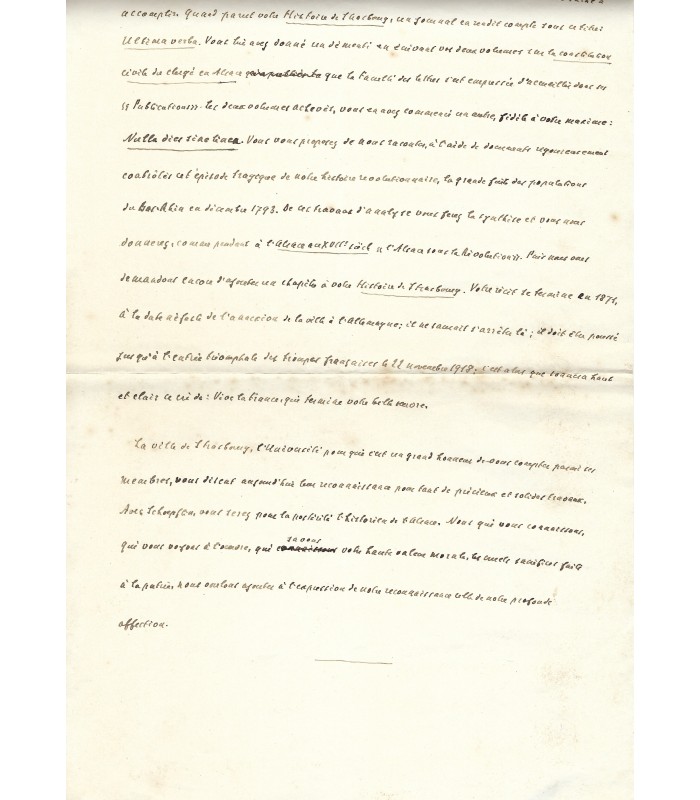 accomplir. Quand parut votre Histoire de Strasbourg, un journal en rendit compte sous ce titre:
Ultima verba. Vous lui avez donné un démenti en écrivant vos deux volumes sur la constitution
civile du clergé en Alsace que la Faculté des lettres s'est empressée d'accueillir dans ses
« Publications ». Les deux volumes achevés, vous en avez commencé un autre, fidèle à votre maxime:
Nulla dies sine linea. Vous vous proposez de nous raconter, à l'aide de documents rigoureusement
contrôlés cet épisode tragique de notre histoire révolutionnaire, la grande fuite des populations
du Bas-Rhin en décembre 1793. De ces travaux d'analyse vous ferez la synthèse et vous nous
donnerez, comme pendant à l'Alsace au XVIIe siècle « l'Alsace sous la Révolution ». Puis nous vous
demandons encore d'ajouter un chapitre à votre Histoire de Strasbourg. Votre récit se termine en 1871,
à la date néfaste de l'annexion de la ville à l'Allemagne; il ne saurait s'arrêter là; il doit être poussé
jusqu'à l'entrée triomphale des troupes françaises le 22 novembre 1918; c'est alors que sonnera haut
et clair ce cri de: Vive la France, qui termine votre belle œuvre.
La ville de Strasbourg, l'Université pour qui c'est un grand honneur de vous compter parmi ses
membres, vous disent aujourd'hui leur reconnaissance pour tant de précieux et solides travaux.
Avec Schoepflin, vous serez pour la postérité l'historien de l'Alsace. Nous qui vous connaissons,
savons
qui vous voyons à l'œuvre, qui connaissons votre haute valeur morale, les cruels sacrifices faits
à la patrie, nous voulons ajouter à l'expression de notre reconnaissance celle de notre profonde
affection.